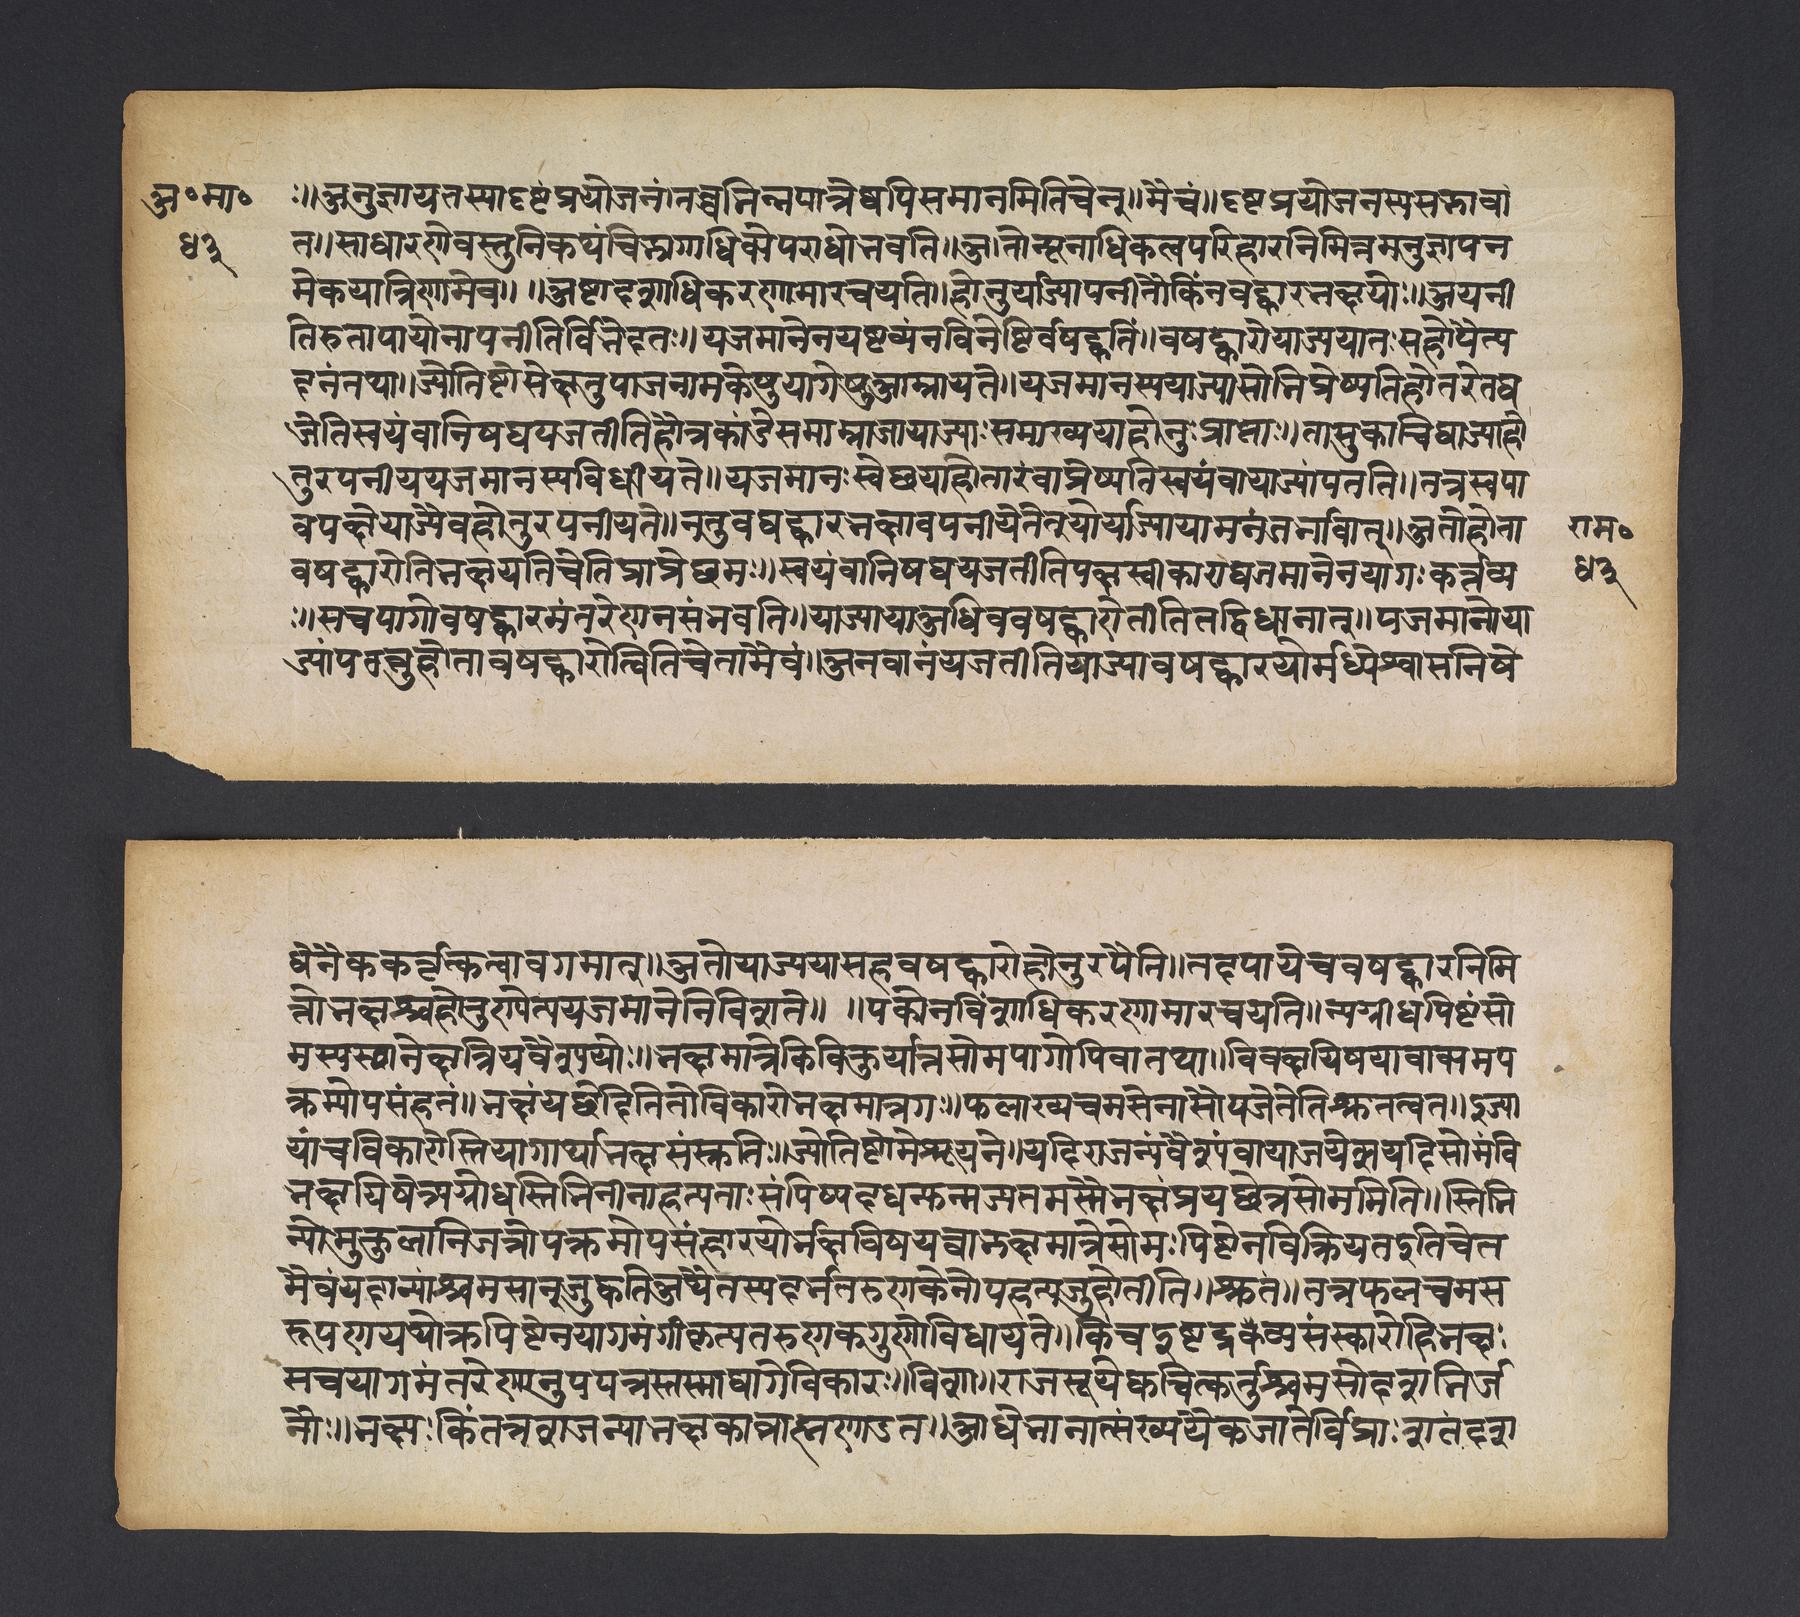 अ॰मा॰
ः॥अनुज्ञायतस्यादृष्टंप्रयोजनं।तच्चभिन्नपात्रेष्वपिसमानमितिचेत्॥मैवं॥दृष्टप्रयोजनस्यसद्भावा
त॥साधारणेवस्तुनिकयंचिद्भागाधिक्येपराधोभवति॥अतोन्यूनाधिकत्वपरिहारनिमित्तमनुज्ञापन
मेकपात्रिणामेव॥ ॥अष्टादशाधिकरणमारचयति॥होतुर्याज्यापनीतौकिंनवषट्कारभक्षयोः॥अपनी
तिरुतापायोनापनीतिर्विभेदतः॥यजमानेनयष्टव्यंनविनेष्टिर्वषट्कृतिं॥वषट्कारोयाज्ययातःसहोपैत्य
दनंतथा॥ज्योतिष्टोमेऋतुयाजनामकेषुयागेषुआम्नायते॥यजमानस्ययाज्यासोभिप्रेष्यतिहोतरेतद्य
जेतिस्वयंवानिषद्ययजतीतिहौत्रकांडेसमाम्नाजायाज्याःसमाख्ययाहोतुःप्राप्ताः॥तासुकाचिद्याज्याहो
तुरपनीययजमानस्यविधीयते॥यजमानःस्वेछयाहोतारंवाप्रेष्यतिस्वयंवायाज्यांपठति॥तत्रस्वपा
वपक्षेयाज्यैवहोतुरपनीयते॥नतुवषट्कारभक्षावपनीयेतेतुयोर्याज्यायामनंतर्भावात्॥अतोहोता
राम॰
वषट्कारोतिभक्षयतिचेतिप्राप्रेब्रूमः॥स्वयंवानिषद्ययजतीतिपक्षस्वीकाराद्यजमानेनयागःकर्त्तव्य
ः॥सचयागोवषट्कारमंतरेणनसंभवति॥याज्यायाअधिववषट्कारोतीतितद्विधानात्॥यजमानोया
ज्यांपठतुहोतावषट्कारोत्वितिचेतामैवं॥अनवानंयजतीतियाज्यावषट्कारयोर्मध्येश्वासनिषे
धेनैककर्त्तृकत्वावगमात्॥अतोयाज्ययासहवषट्कारोहोतुरपैति॥तदपायेचवषट्कारनिमि
त्तोभक्षश्चहोतुरपेत्ययजमानेनिविशते॥ ॥एकोनविंशाधिकरणमारचयति॥न्यग्रोधपिष्टंसो
मस्यस्थानेक्षत्रियवैश्ययोः॥भक्षमात्रेकिविकुर्यात्नसोमयागोपिवातथा॥विवक्षायिषयावाक्यमुप
क्रम्योपसंहृतं॥भक्षंयछेदितितोविकारोभक्षमात्रगः॥फलाख्यचमसेनासौयजेतेतिश्रुतत्वत॥इज्या
यांचविकारोस्तियागार्थाभक्षसंस्कृतिः॥ज्योतिष्टोमेश्रूयते॥यदिराजन्यंवैश्यंवायाजयेत्सयदिसोमंवि
भक्षयिषेन्न्यग्रोधस्तिभिनीराहृत्यताःसंपिष्यदधन्युन्मृज्यतमस्मैभक्षंप्रयछेन्नसोममिति॥स्तिभि
न्योमुकुलानिअत्रोपक्रमोपसंहारयोर्भक्षविषयत्वाद्भक्षमात्रेसोमःपिष्टेनविक्रियतइतिचेत
मैवंयदान्यांश्चमसानुजुह्वतिअथैतस्यदर्भतरुणकेनोपहत्यजुहोतीति॥श्रुतं॥तत्रफलचमस
रूपणयथोक्तपिष्टेनयागमंगीकृत्यतरुणकगुणोविधीयते॥किंचदृष्टद्रव्यसंस्कारोहिभक्षः
सचयागमंतरेणानुपपन्नस्तस्माद्यागेविकारः॥विंश॥राजसूयेक्वचित्कर्तुश्चमसोदशभिर्ज
नैः॥भक्ष्यःकिंतत्रराजन्याभक्षकाब्राह्मणाउत॥आधेभानात्संख्ययैकजातेर्विप्राःशतंदश